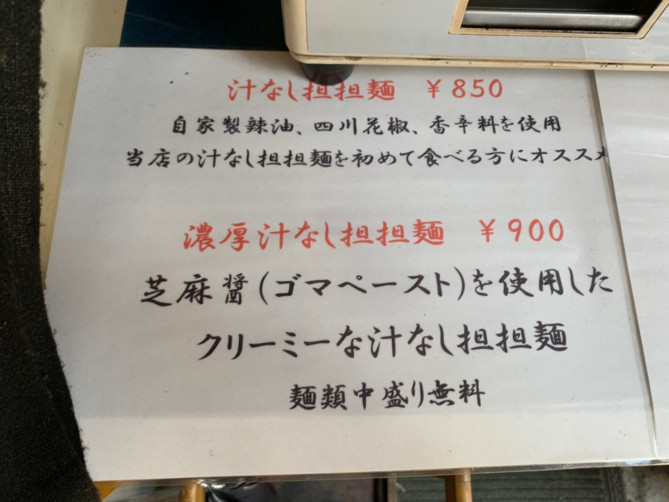 汁なし担担麺 ￥850
自家製辣油、四川花椒、香辛料を使用
当店の汁なし担担麺を初めて食べる方にオススメ
濃厚汁なし担担麺 ￥900
芝麻醤(ゴマペースト)を使用した
クリーミーな汁なし担担麺
麺類中盛り無料